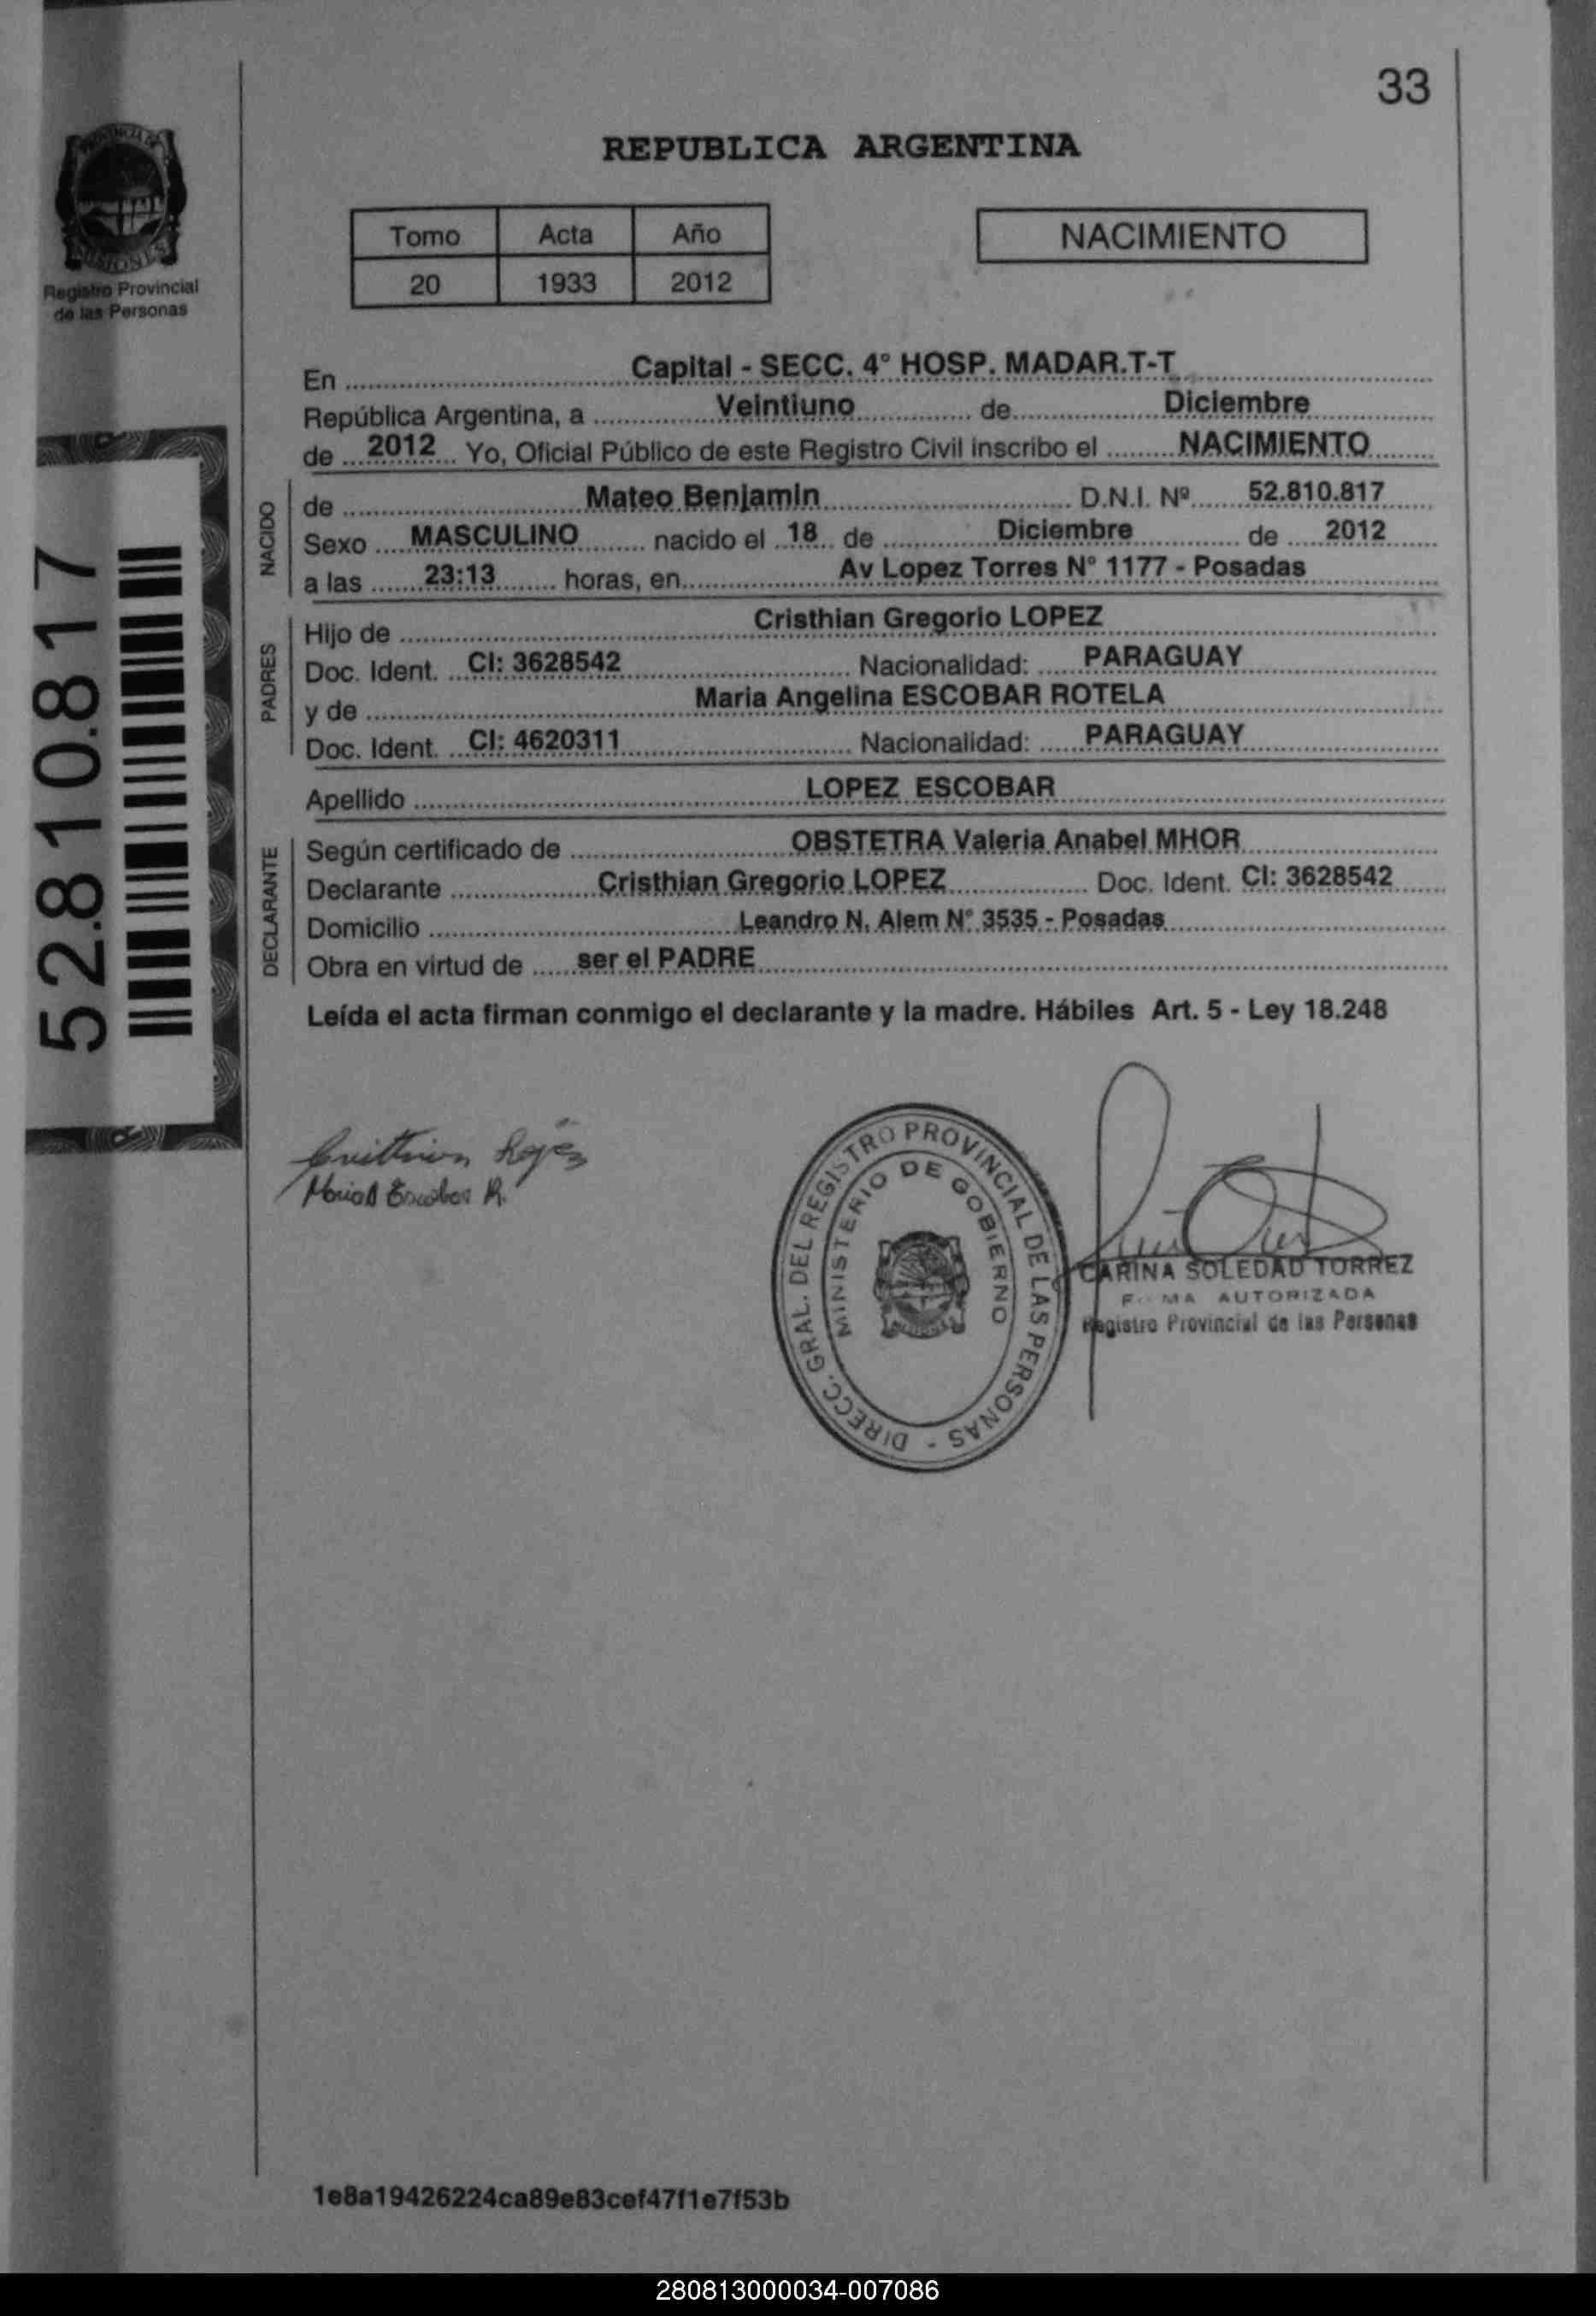 33
PROVINCIA DE
MISIONES
Registro Provincial
de las Personas
REPUBLICA ARGENTINA
Tomo Acta Año
20 1933 2012
NACIMIENTO
En Capital - SECC. 4° HOSP. MADAR.T-T
República Argentina, a Veintiuno de Diciembre
de 2012 Yo, Oficial Público de este Registro Civil inscribo el NACIMIENTO
NACIDO
de Mateo Benjamin D.N.I. Nº 52.810.817
Sexo MASCULINO nacido el 18 de Diciembre de 2012
a las 23:13 horas, en Av Lopez Torres N° 1177 - Posadas
PADRES
Hijo de Cristhian Gregorio LOPEZ
Doc. Ident. CI: 3628542 Nacionalidad: PARAGUAY
y de Maria Angelina ESCOBAR ROTELA
Doc. Ident. CI: 4620311 Nacionalidad: PARAGUAY
Apellido LOPEZ ESCOBAR
DECLARANTE
Según certificado de OBSTETRA Valeria Anabel MHOR
Declarante Cristhian Gregorio LOPEZ Doc. Ident. CI: 3628542
Domicilio Leandro N. Alem N° 3535 - Posadas
Obra en virtud de ser el PADRE
Leída el acta firman conmigo el declarante y la madre. Hábiles Art. 5 - Ley 18.248
52.810.817
Cristhian Lopez
Maria A Escobar R.
DIRECC. GRAL. DEL REGISTRO PROVINCIAL DE LAS PERSONAS -
MINISTERIO DE GOBIERNO
CARINA SOLEDAD TORREZ
AUTORIZADA
Registro Provincial de las Personas
1e8a19426224ca89e83cef47f1e7f53b
280813000034-007086